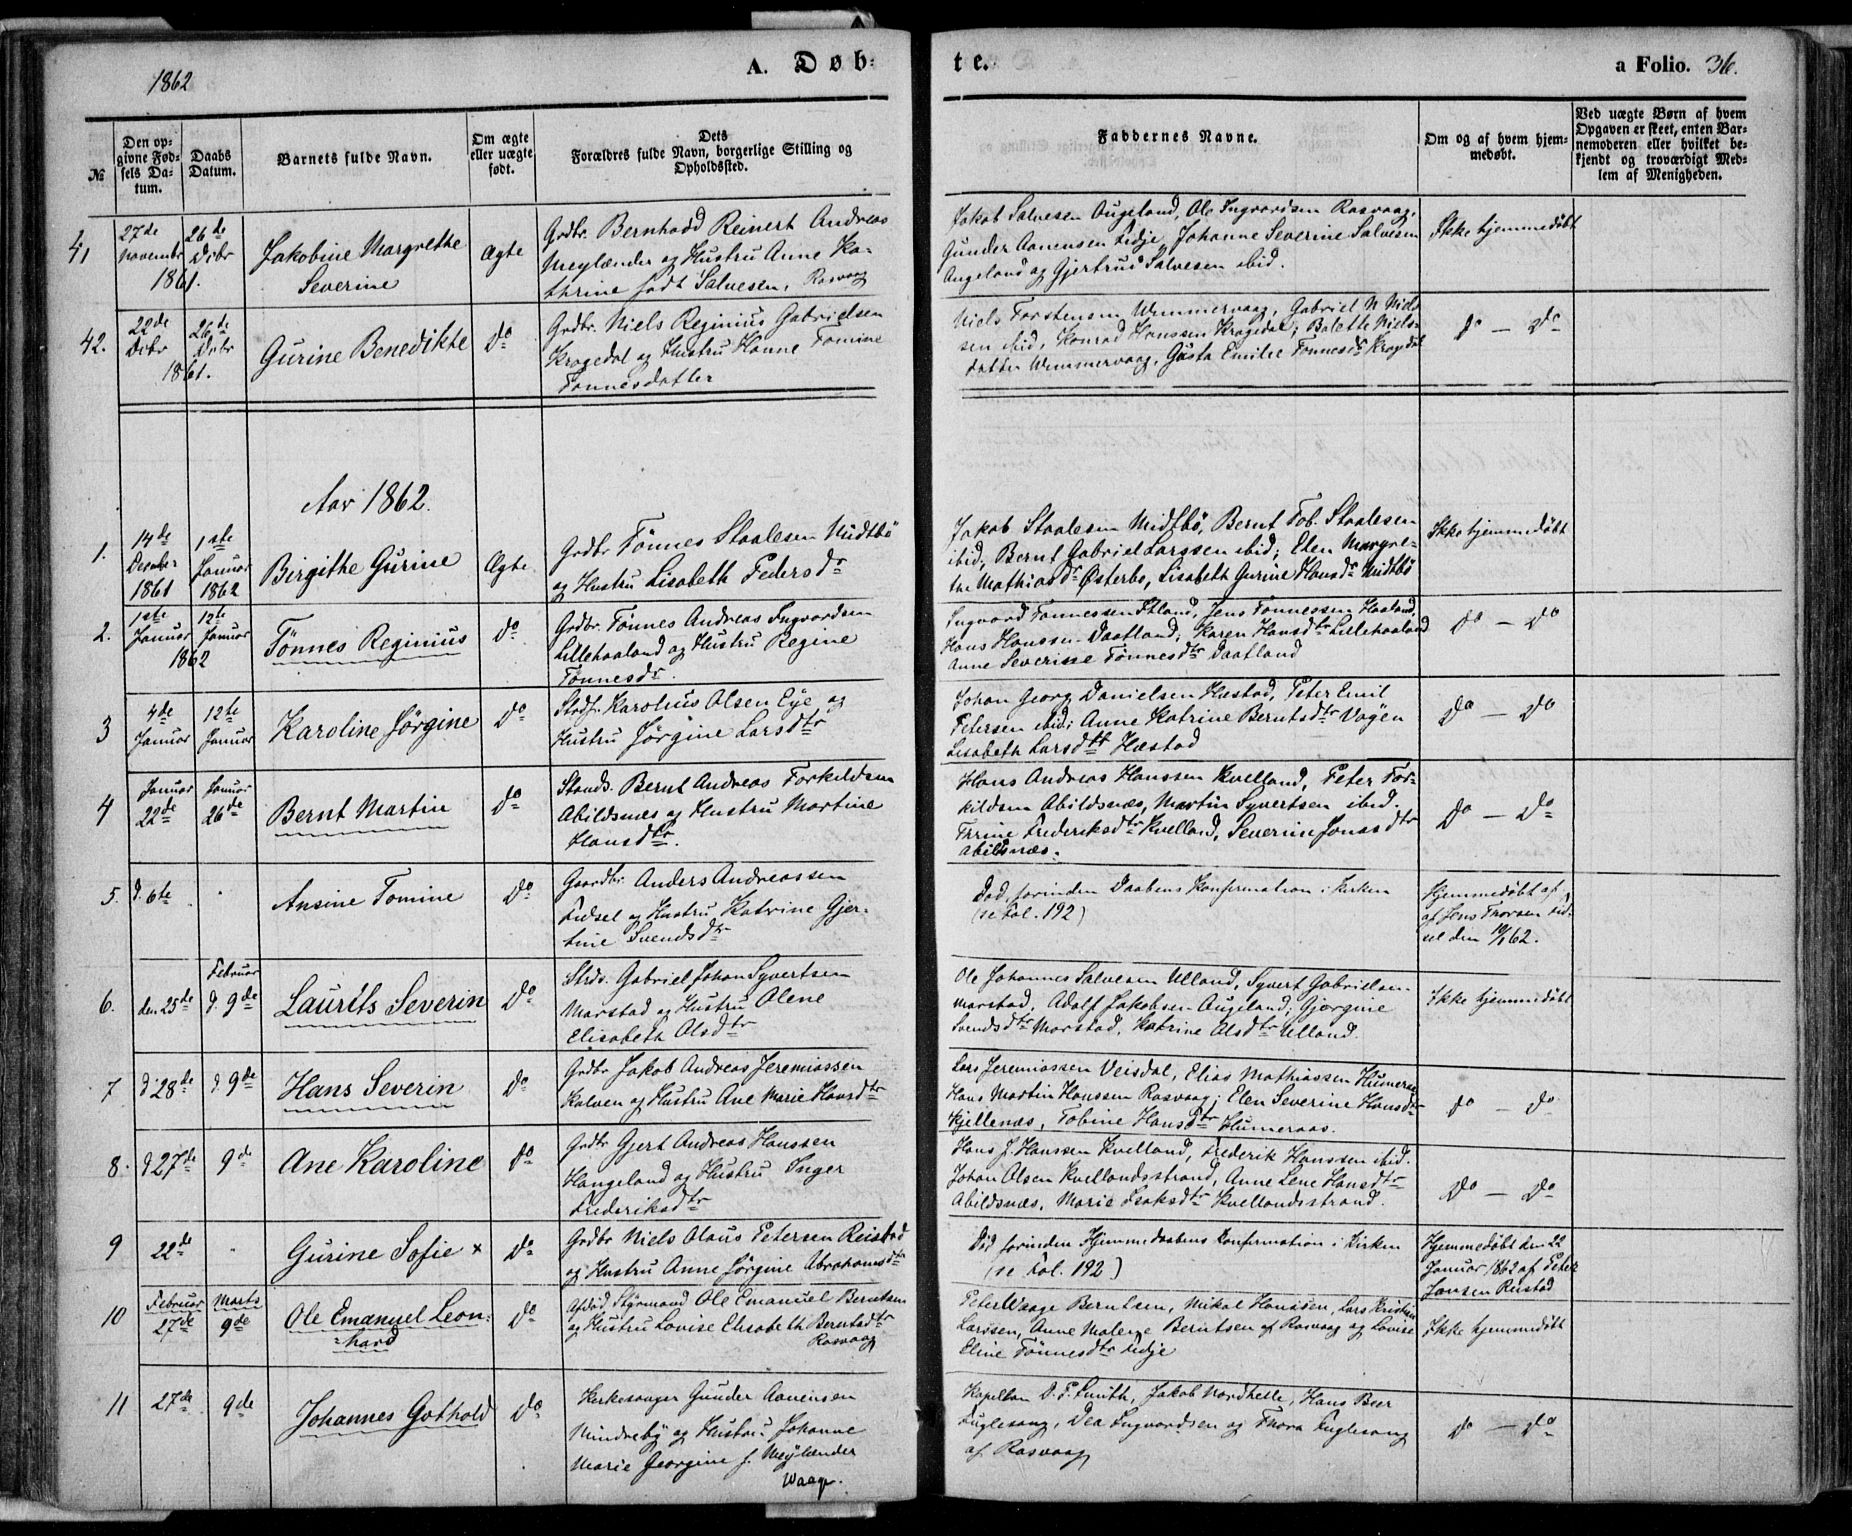 1862
A. Døb-
te.
a Folio. 36.
№
Den op-
givne Fød-
sels Da-
tum.
Daabs
Datum.
Barnets fulde Navn.
Om ægte
eller uægte
født.
Dets
Forældres fulde Navn, borgerlige Stilling og
Opholdssted.
Faddernes Navne.
Om og af hvem hjem-
medøbt.
Ved uægte Børn af hvem
Opgaven er skeet, enten Bar-
nemoderen eller hvilket be-
kjendt og troværdigt Med-
lem af Menigheden.
41
27de
novembr
1861.
26de
Dcbr
Jakobine Margrethe
Severine
Ægte
Grdbr. Bernhadd Reinert Andreas
Meylænder og Hustru Anne Ka-
thrine født Salvesen, Rasvaag
Jakob Salvesen Augeland, Ole Ingvardsen Rasvaag,
Gunder Aanensen Lidje, Johanne Severine Salvesen
Augeland og Gjertrud Salvesen ibid.
Ikke hjemmedøbt
42.
22de
Dcbr
1861.
26de
Dcbr
Gurine Benedikte
Do
Grdbr. Niels Reginius Gabrielsen
Kragedal og Hustru Hanne Tomine
Tønnesdatter
Niels Torstensen Wemmervaag, Gabriel N Niel-
sen ibid, Konrad Hanssen Kragedal; Balette Niels-
datter Wemmervaag, Gusta Emilie Tønnesdr Kragedal
Do — Do
Aar 1862.
1.
14de
Decembr
1861
1ste
Januar
1862
Birgithe Gurine
Ægte
Grdbr Tönnes Staalesen Midtbö
og Hustru Lisabeth Pedersdr
Jakob Staalesen Midtbö, Bernt Tob. Staalesen
ibid, Bernt Gabriel Larssen ibid; Elen Margre-
the Mathiasdr Østerbø, Lisabeth Gurine Hansdr Midtbö
Ikke hjemmedøbt
2.
1ste
Januar
1862
12te
Januar
Tönnes Reginius
Do
Grdbr. Tønnes Andreas Ingvardsen
Lillehaaland og Hustru Regine
Tønnesdr.
Ingvard Tønnessen Øtland, Jens Tønnessen Haaland,
Hans Hanssen Daatland; Karen Hansdtr Lillehaaland
Anne Severine Tønnesdtr Daatland
Do — Do
3
4de
Januar
12te
Januar
Karoline Jørgine
Do
Strdf. Karolius Olsen Eye og
Hustru Jørgine Larsdtr
Johan Georg Danielsen Hæstad, Peter Emil
Petersen ibid; Anne Katrine Berntsdtr Vagen
Lisabeth Larsdtr Hæstad
Do — Do
4
Januar
22de
Januar
26de
Bernt Martin
Do
Stands. Bernt Andreas Torkildsen
Abildsnæs og Hustru Martine
Hansdtr.
Hans Andreas Hanssen Kvelland, Peter Tor-
kildsen Abildsnæs, Martin Syvertsen ibid.
Trine Frederiksdtr Kvelland, Severine Jonasdtr
Abildsnæs.
Do — Do
5.
d. 6te
Ansine Tomine
Do
Gaardbr. Anders Andreassen
Fidsel og Hustru Katrine Gjer-
tine Svendsdtr
Død forinden Daabens Konfirmation i Kirken
(se Fol. 192)
Hjemmedøbt af
af Jens Thorsen Fid-
sel den 10/1 62.
6.
den 25de
Februar
d. 9de
Laurits Severin
Do
Strds. Gabriel Johan Syvertsen
Marstad og Hustru Olene
Elisabeth Olsdtr
Ole Johannes Salvesen Ulland, Syvert Gabrielsen
Marstad, Adolf Jakobsen Augeland, Gjørgine
Svendsdtr Marstad, Katrine Olsdtr Ulland.
Ikke hjemmedøbt
7
d. 28de
d. 9de
Hans Severin
Do
Grdbr Jakob Andreas Jeremiassen
Kalven og Hustru Ane Marie Hansdtr
Lars Jeremiassen Veisdal, Elias Mathiassen Humeraas
Hans Martin Hanssen Rasvaag; Elen Severine Hansdtr
Kjellenæs, Tobine Hansdtr Humeraas.
Do — Do
8.
d 27de
9de
Ane Karoline
Do
Grdbr Gjert Andreas Hanssen
Hangeland og Hustru Inger
Frederiksdtr
Hans J. Hanssen Kvelland, Frederik Hanssen ibid.
Johan Olsen Kvellandsstrand, Anne Lene Hansdtr
Abildsnæs, Marie Isaksdtr Kvellandsstrand.
Do — Do
9
22de
Gurine Sofie x
Do
Grdbr Niels Olaus Petersen Reistad
og Hustru Anne Jørgine Abrahamsdtr
Død forinden Hjemmedaabens Konfirmation i Kirken
(se Fol. 192)
Hjemmedøbt den 22
Januar 1862 af Peter
Jansen Reistad
10
Februar
27de
Marts
9de
Ole Emanuel Leon-
hard
Do
Afdød Styrmand Ole Emanuel Berntsen
og Hustru Lovise Elisabeth Berntsdtr
Rasvaag
Peter Waage Berntsen, Mikal Hanssen, Lars Kristian
Larssen, Anne Malene Berntsen af Rasvaag og Lovise
Eline Tönnesdtr Lidje
Ikke hjemmedøbt
11
27de
9de
Johannes Gothold
Do
Kirkesanger Gunder Aanensen
Mindreby og Hustru Johanne
Marie Georgine f. Meylænder
Waage.
Kapellan D. F. Smith, Jakob Nordhelle, Hans Beer
Fuglesang, Dea Ingvardsen og Thora Fuglesang
af Rasvaag
Do — Do